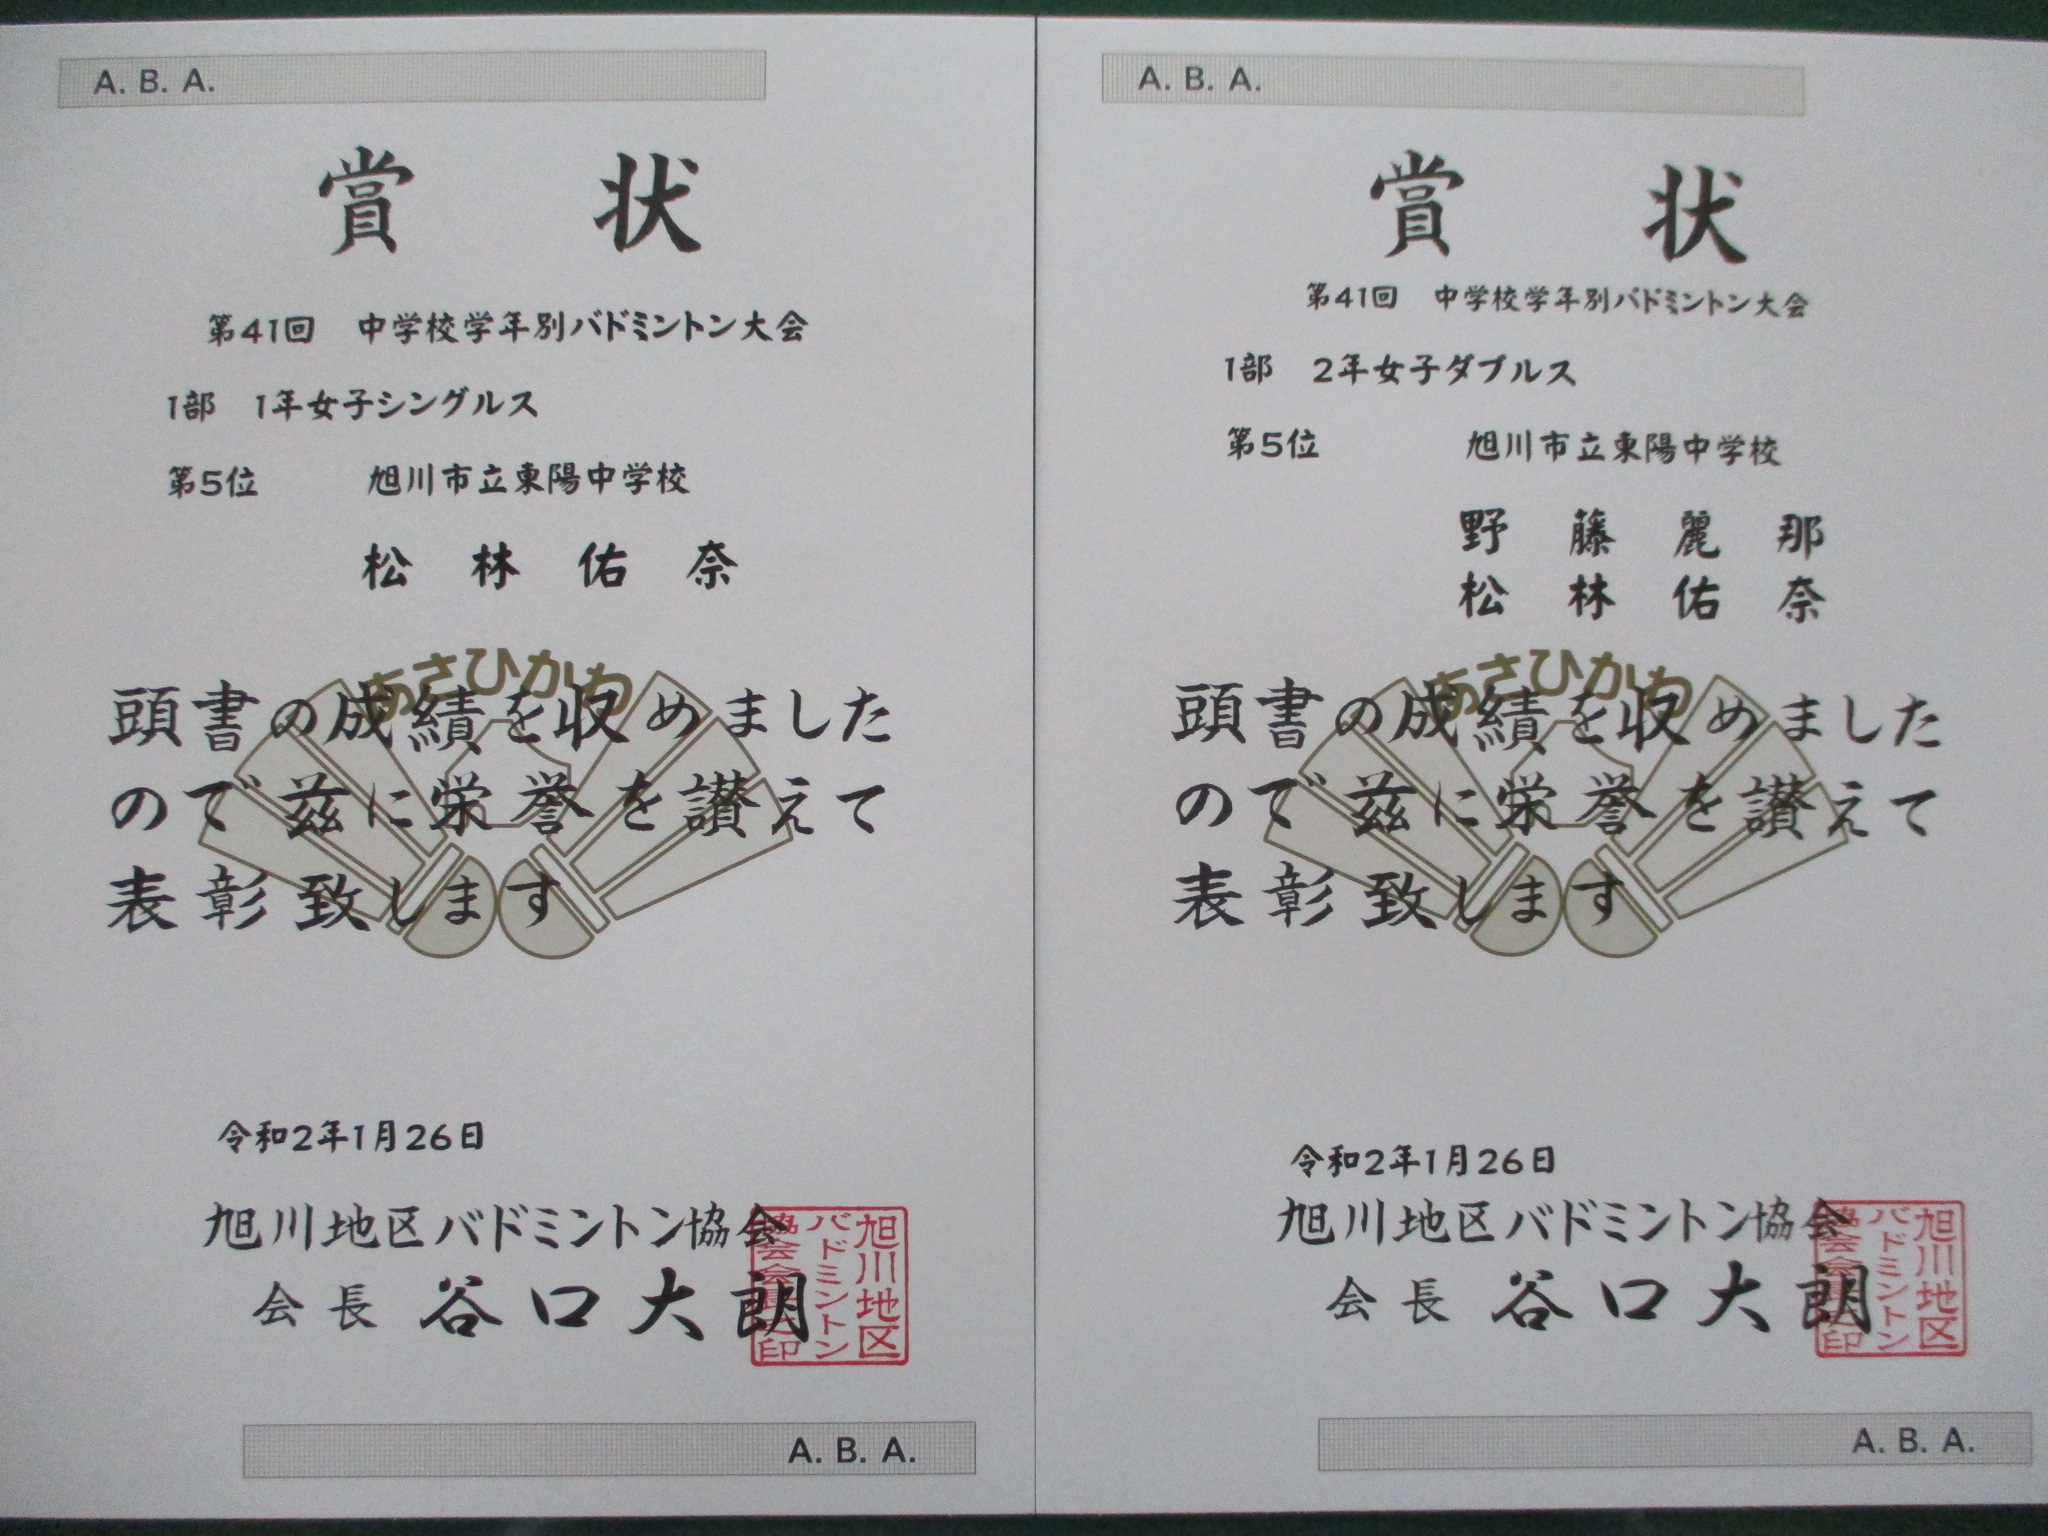 A. B. A.
賞 状
第41回 中学校学年別バドミントン大会
1部 1年女子シングルス
第5位 旭川市立東陽中学校
松 林 佑 奈
あさひかわ
頭書の成績を収めました
ので茲に栄誉を讃えて
表彰致します
令和2年1月26日
旭川地区バドミントン協会
会長 谷口大朗
旭川地区
バドミントン
協会会長之印
A. B. A.
A. B. A.
賞 状
第41回 中学校学年別バドミントン大会
1部 2年女子ダブルス
第5位 旭川市立東陽中学校
野 藤 麗 那
松 林 佑 奈
あさひかわ
頭書の成績を収めました
ので茲に栄誉を讃えて
表彰致します
令和2年1月26日
旭川地区バドミントン協会
会長 谷口大朗
旭川地区
バドミントン
協会会長之印
A. B. A.